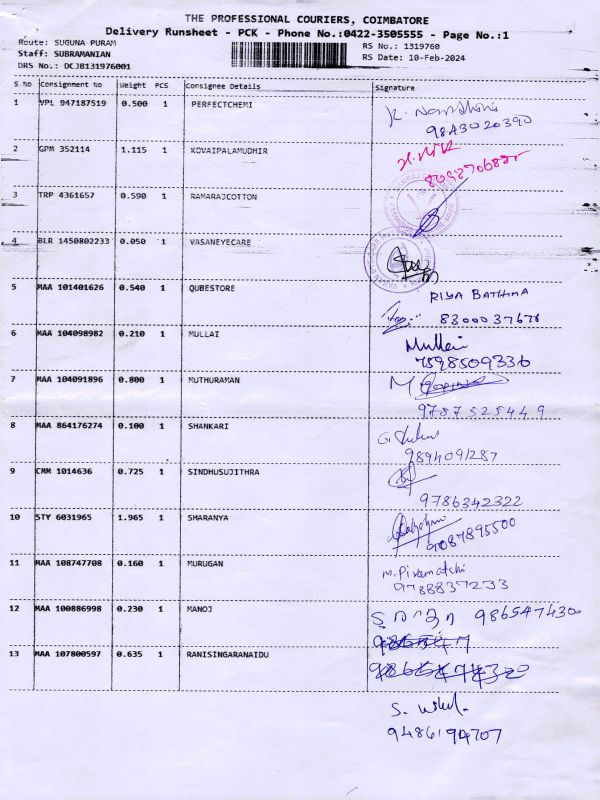 THE PROFESSIONAL COURIERS, COIMBATORE
Delivery Runsheet - PCK - Phone No.:0422-3505555 - Page No.:1
Route: SUGUNA PURAM
RS No.: 1319760
Staff: SUBRAMANIAN
RS Date: 10-Feb-2024
DRS No.: DCJB131976001
S.No Consignment No Weight PCS Consignee Details Signature
1 VPL 947187519 0.500 1 PERFECTCHEMI
9843020390
2 GPM 352114 1.115 1 KOVAIPALAMUDHIR
3 TRP 4361657 0.590 1 RAMARAJCOTTON
4 BLR 1450802233 0.050 1 VASANEYECARE
5 MAA 101401626 0.540 1 QUBESTORE
RIYA BATHMA
8300037678
6 MAA 104098982 0.210 1 MULLAI
Mullai
7598509336
7 MAA 104091896 0.800 1 MUTHURAMAN
9787525449
8 MAA 864176274 0.100 1 SHANKARI
9894091287
9 CMM 1014636 0.725 1 SINDHUSUJITHRA
9786342322
10 STY 6031965 1.965 1 SHARANYA
9087895500
11 MAA 108747708 0.160 1 MURUGAN
9788837233
12 MAA 100886998 0.230 1 MANOJ
9865474300
13 MAA 107800597 0.635 1 RANISINGARANAIDU
9486194707